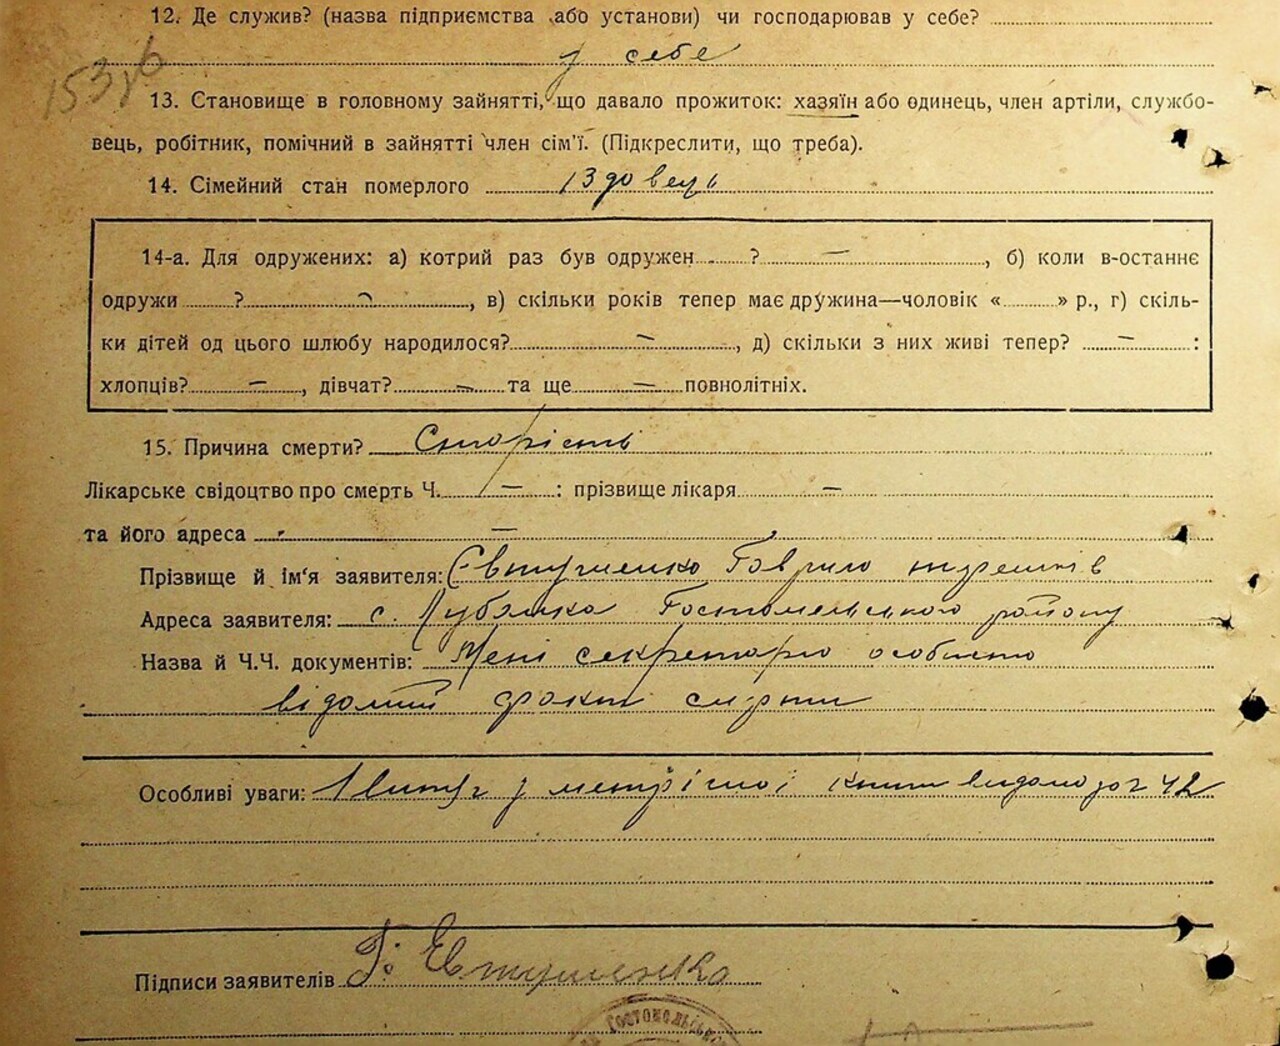 12. Де служив? (назва підприємства або установи) чи господарював у себе?
у себе
153зв
13. Становище в головному зайнятті, що давало прожиток: хазяїн або одинець, член артіли, службо-
вець, робітник, помічний в зайнятті член сім'ї. (Підкреслити, що треба).
14. Сімейний стан померлого вдовець
14-а. Для одружених: а) котрий раз був одружен ? —, б) коли в-останнє
одружи ? —, в) скільки років тепер має дружина—чоловік « » р., г) скіль-
ки дітей од цього шлюбу народилося? —, д) скільки з них живі тепер? — :
хлопців? —, дівчат? — та ще — повнолітніх.
15. Причина смерти? Старість
Лікарське свідоцтво про смерть Ч. — : прізвище лікаря —
та його адреса —
Прізвище й ім'я заявителя: Євтушенко Гаврило
Адреса заявителя: с. Лубянка Гостомельського району
Назва й Ч.Ч. документів: Мені секретарю особисто
відомий факт смерти
Особливі уваги: 1 витяг з метричної книги видано
Підписи заявителів Г. Євтушенко
Гостомельськ